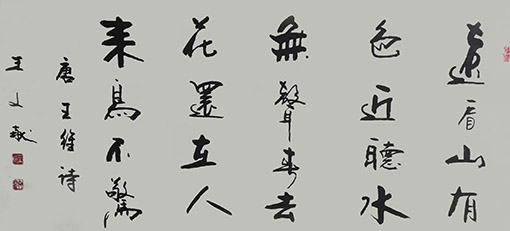 遠看山有
色近聽水
無聲春去
花還在人
來鳥不驚
唐王維诗
王文